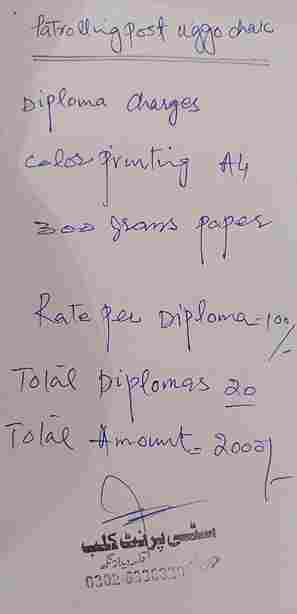 Patrolling post uggo chak
Diploma charges
Color printing A4
300 grams paper
Rate per Diploma = 100/-
Total Diplomas 20
Total Amount = 2000/-
سٹی پرنٹ کلب